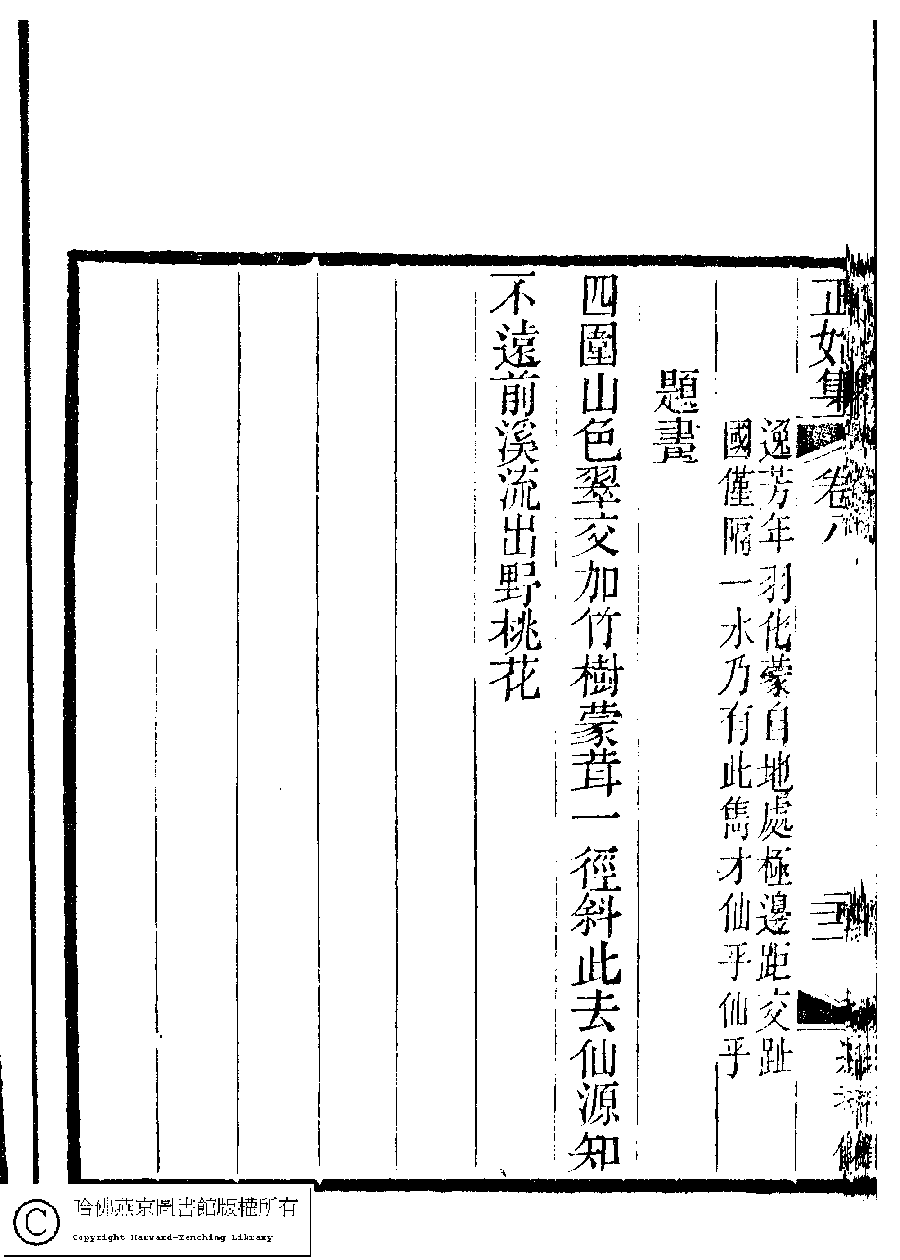 正始集
卷八
逸芳年羽化蒙自地處極邊距交趾
國僅隔一水乃有此雋才仙乎仙乎
題畫
四圍山色翠交加竹樹蒙茸一徑斜此去仙源知
不遠前溪流出野桃花
哈佛燕京圖書館版權所有
Copyright Harvard-Yenching Library